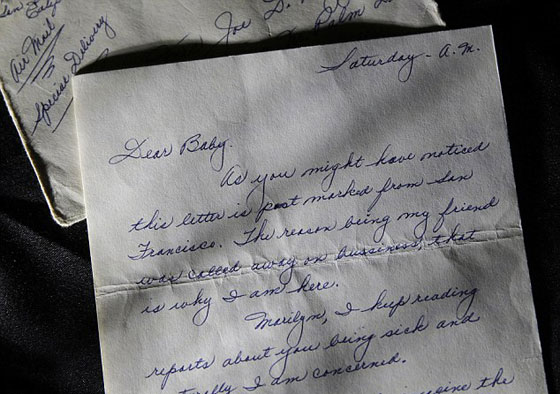 San
Air Mail
3
Special Delivery
Joe D.
Palm
Saturday - A.M.
Dear Baby.
As you might have noticed
this letter is post marked from San
Francisco. The reason being my friend
was called away on bussiness, that
is why I am here.
Marilyn, I keep reading
reports about you being sick and
I am concerned.
the